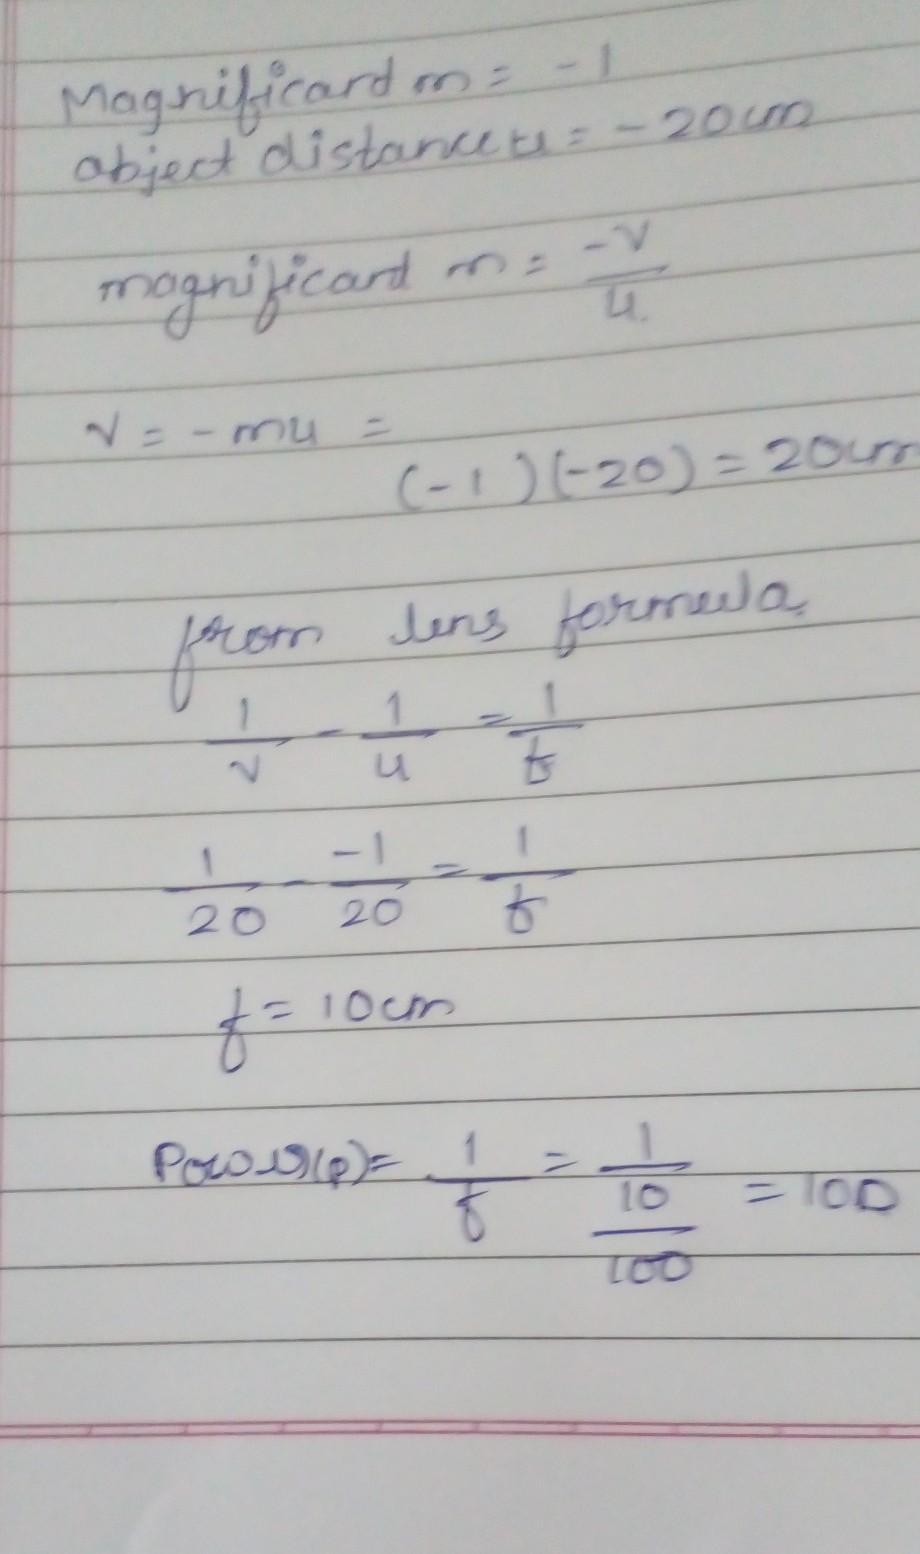 Magnificard m = -1
abject distance u = -20cm
magnificard m = -v/u.
v = -mu =
(-1)(-20) = 20cm
from lens formula
1/v - 1/u = 1/f
1/20 - -1/20 = 1/f
f = 10cm
Power(p) = 1/f = 1/(10/100) = 10D